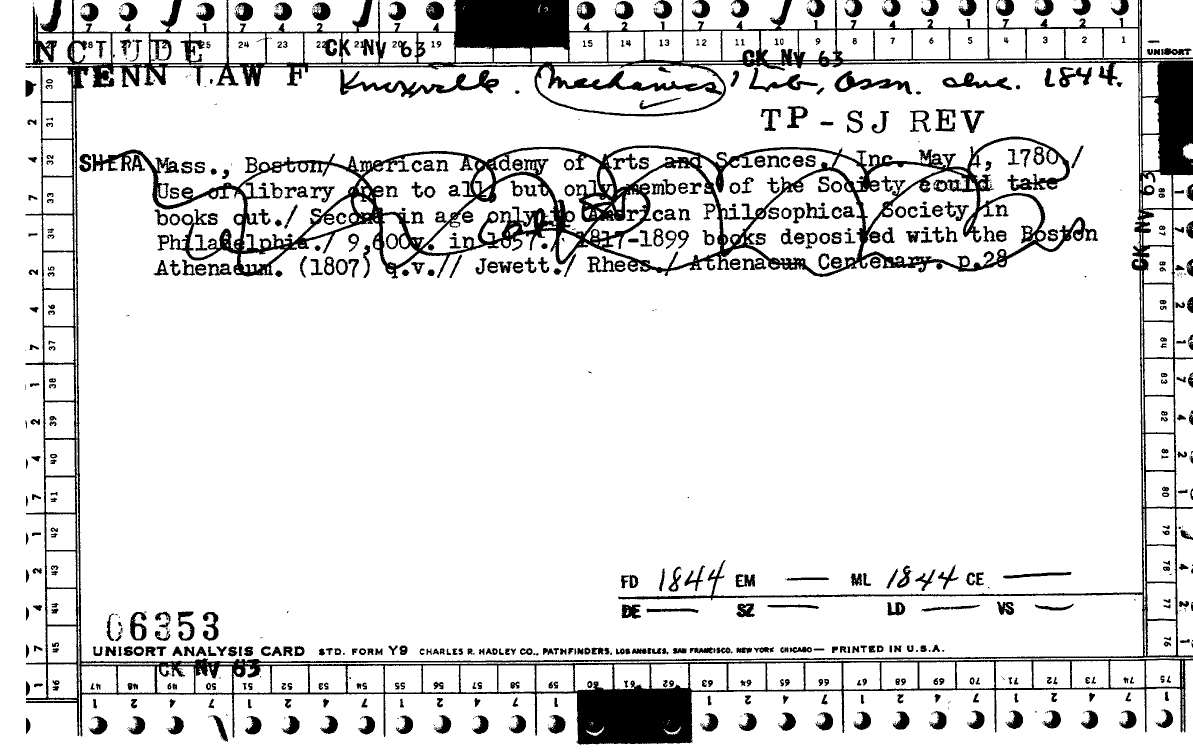 7 4 2 1 7 4 2 1 7 4 2 1 4 2 1 7 4 2 1 7 4 2 1
24 23 22 21 20 19 15 14 13 12 11 10 9 8 7 6 5 4 3 2 1
NCLUDE CK NV 63 CK NV 63 UNISORT
TENN LAW F Knoxville. Mechanics' Lib. Assn. inc. 1844.
TP - SJ REV
SHERA Mass., Boston/ American Academy of Arts and Sciences./ Inc. May 4, 1780./
Use of library open to all, but only members of the Society could take
books out./ Second in age only to American Philosophical Society in
Philadelphia./ 9,600v. in 1857./ 1817-1899 books deposited with the Boston
Athenaeum. (1807) q.v.// Jewett./ Rhees./ Athenaeum Centenary. p.28
CK NV 63
FD 1844 EM — ML 1844 CE —
DE — SZ — LD — VS —
06353
UNISORT ANALYSIS CARD STD. FORM Y9 CHARLES R. HADLEY CO., PATHFINDERS, LOS ANGELES, SAN FRANCISCO, NEW YORK CHICAGO — PRINTED IN U.S.A.
CK NV 63
47 48 49 50 51 52 53 54 55 56 57 58 59 60 61 62 63 64 65 66 67 68 69 70 71 72 73 74 75
1 2 4 7 1 2 4 7 1 2 4 7 1 1 2 4 7 1 2 4 7 1 2 4 7 1